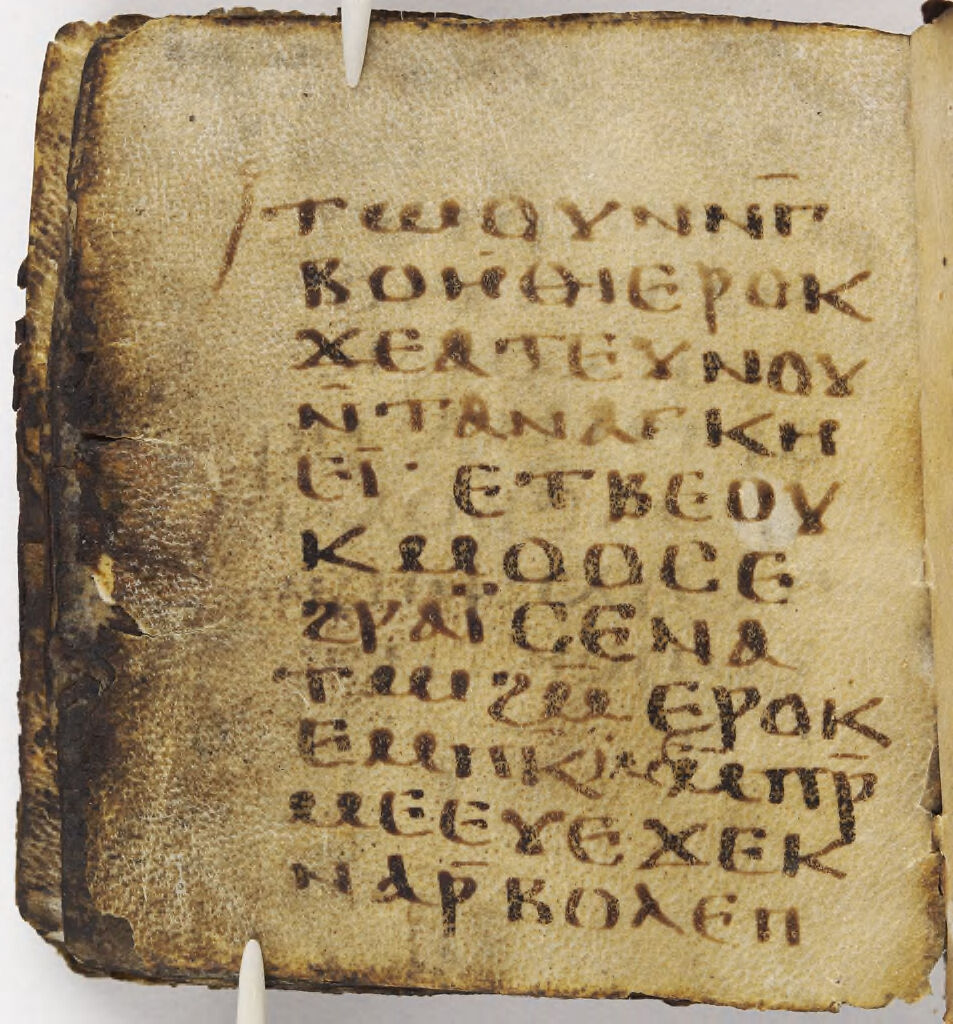 ⲧⲱⲟⲩⲛⲛⲅ̄
ⲃⲟⲏⲑⲓⲉⲣⲟⲕ
ϫⲉⲁⲧⲉⲩⲛⲟⲩ
ⲛ̄ⲧⲁⲛⲁⲅⲕⲏ
ⲉⲓ̄· ⲉⲧⲃⲉⲟⲩ
ⲕⲙⲟⲟⲥⲉ
ϩⲣⲁⲓ̈ⲥⲉⲛⲁ
ⲧⲱϩⲙ̄ⲉⲣⲟⲕ
ⲉⲙⲛ̄ⲕⲓⲙ̄ⲙⲡⲣ̄
ⲙⲉⲉⲩⲉϫⲉⲕ
ⲛⲁⲣ̄ⲃⲟⲗⲉⲡ